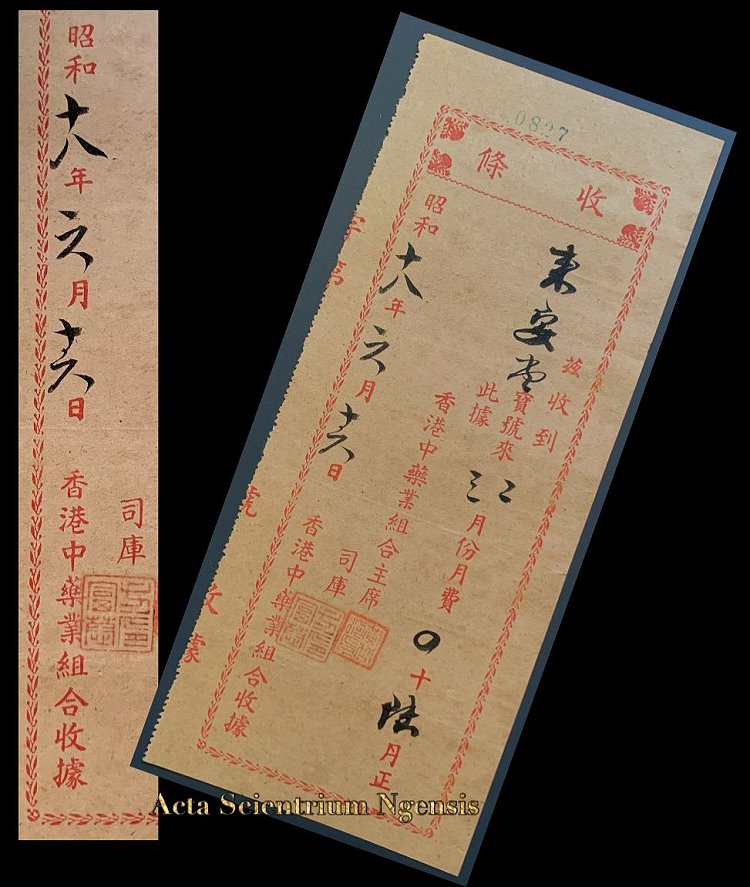 司庫
昭和十八年六月十六日 香港中藥業組合收據
0827
收條
茲收到
東安堂
寶號來 二三 月份月費 〇十陸月正
此據
香港中藥業組合主席
司庫
昭和十八年六月十六日
香港中藥業組合收據
字第 號收據
Acta Scientrium Ngensis